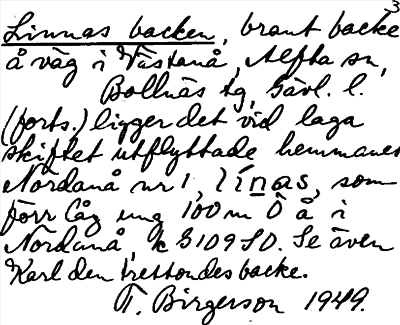 3
Linnas backen, brant backe
å väg i Västanå, Alfta sn,
Bollnäs tg, Gävl. l.
(forts.) ligger det vid laga
skiftet utflyttade hemmanet
Nordanå nr 1, línas, som
förr låg ung 100 m Ö å i
Nordanå, k 3109 SO. Se även
Karl den trettondes backe.
T. Birgerson 1949.